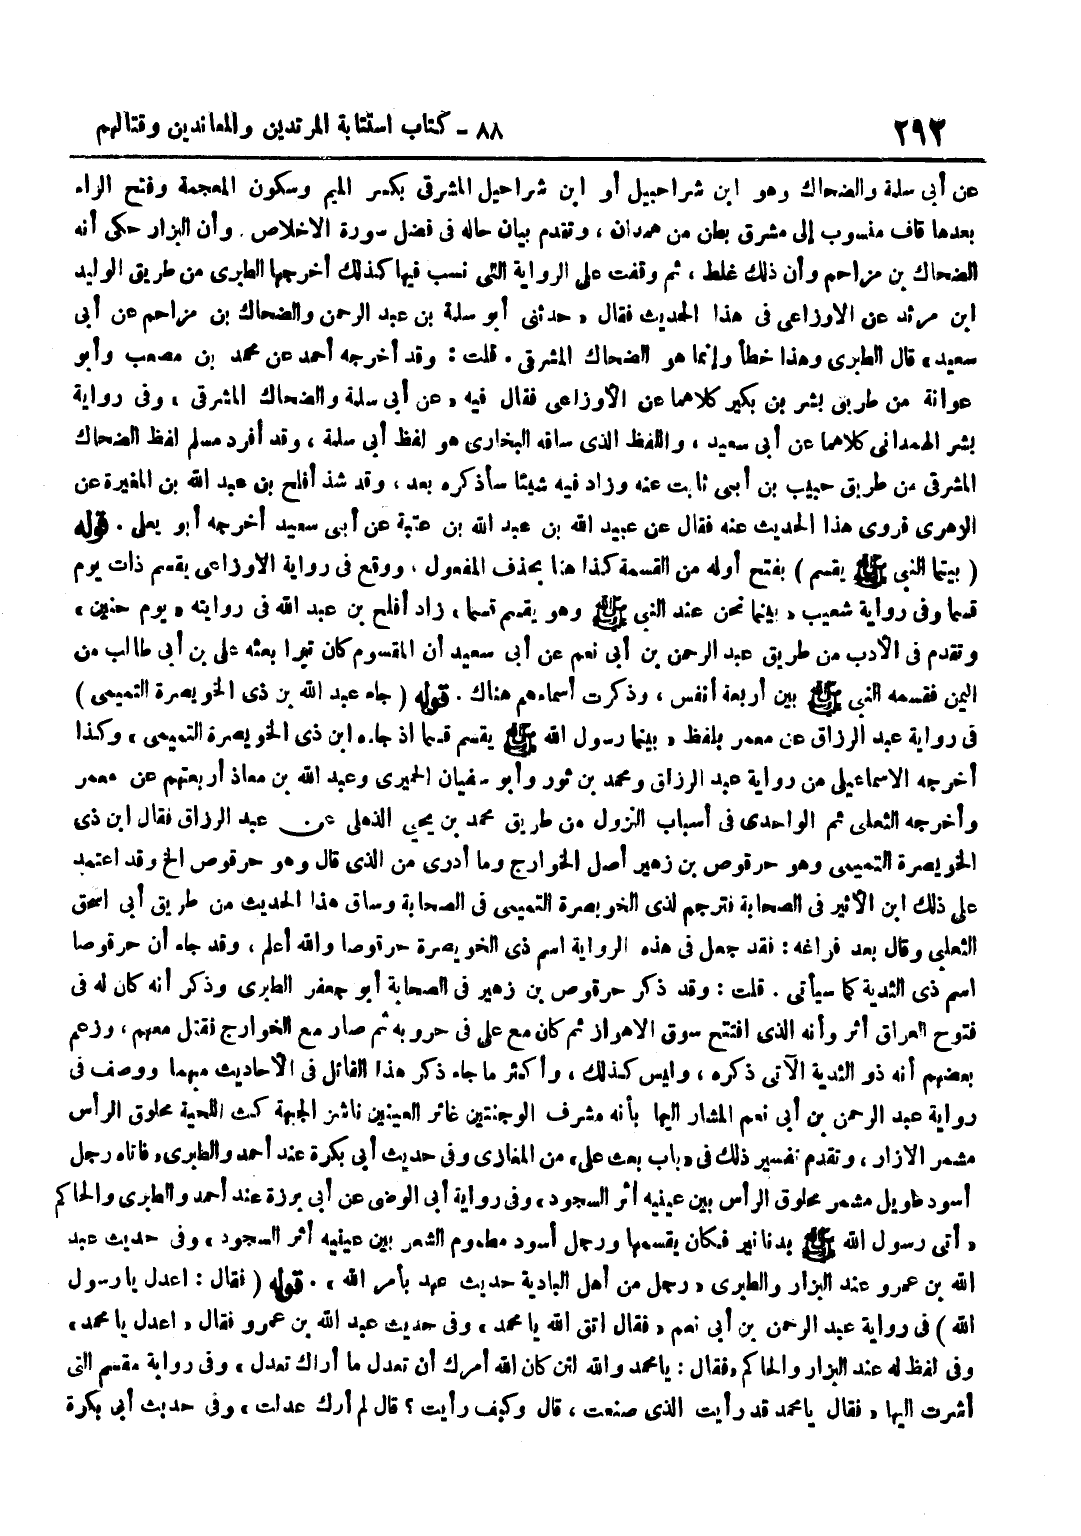 ٢٩٢
٨٨ - كتاب استتابة المرتدين والمعاندين وقتالهم
عن أبى سلمة والضحاك وهو ابن شراحبيل أو ابن شراحيل المشرقى بكسر الميم وسكون المعجمة وفتح الراء
بعدها قاف منسوب إلى مشرق بطن من همدان ، وتقدم بيان حاله فى فضل سورة الاخلاص . وأن البزار حكى أنه
الضحاك بن مزاحم وأن ذلك غلط ، ثم وقفت على الرواية التى نسب فيها كذلك أخرجها الطبرى من طريق الوليد
ابن مرثد عن الاوزاعى فى هذا الحديث فقال « حدثنى أبو سلمة بن عبد الرحمن والضحاك بن مزاحم عن أبى
سعيد » قال الطبرى وهذا خطأ وإنما هو الضحاك المشرقى . قلت : وقد أخرجه أحمد عن محمد بن مصعب وأبو
عوانة من طريق بشر بن بكير كلاهما عن الأوزاعى فقال فيه « عن أبى سلمة والضحاك المشرقى ، وفى رواية
بشر الهمدانى كلاهما عن أبى سعيد ، واللفظ الذى ساقه البخارى هو لفظ أبى سلمة ، وقد أفرد مسلم لفظ الضحاك
المشرقى من طريق حبيب بن أبى ثابت عنه وزاد فيه شيئا سأذكره بعد ، وقد شذ أفلح بن عبد الله بن المغيرة عن
الزهرى فروى هذا الحديث عنه فقال عن عبيد الله بن عبد الله بن عتبة عن أبى سعيد أخرجه أبو يعلى . قوله
( بينما النبى ﷺ يقسم ) بفتح أوله من القسمة كذا هنا بحذف المفعول ، ووقع فى رواية الاوزاعى يقسم ذات يوم
قسما وفى رواية شعيب « بينما نحن عند النبى ﷺ وهو يقسم قسما ، زاد أفلح بن عبد الله فى روايته « يوم حنين ،
وتقدم فى الأدب من طريق عبد الرحمن بن أبى نعم عن أبى سعيد أن المقسوم كان تبرا بعثه على بن أبى طالب من
اليمن فقسمه النبى ﷺ بين أربعة أنفس ، وذكرت أسماءهم هناك . قوله ( جاء عبد الله بن ذى الخويصرة التميمى )
فى رواية عبد الرزاق عن معمر بلفظ « بينما رسول الله ﷺ يقسم قسما اذ جاءه ابن ذى الخويصرة التميمى ، وكذا
أخرجه الاسماعيلى من رواية عبد الرزاق ومحمد بن ثور وأبو سفيان الحميرى وعبد الله بن معاذ أربعتهم عن معمر
وأخرجه الثعلبى ثم الواحدى فى أسباب النزول من طريق محمد بن يحيى الذهلى عن عبد الرزاق فقال ابن ذى
الخويصرة التميمى وهو حرقوص بن زهير أصل الخوارج وما أدرى من الذى قال وهو حرقوص الخ وقد اعتمد
على ذلك ابن الأثير فى الصحابة فترجم لذى الخويصرة التميمى فى الصحابة وساق هذا الحديث من طريق أبى اسحق
الثعلبى وقال بعد فراغه : فقد جعل فى هذه الرواية اسم ذى الخويصرة حرقوصا والله أعلم ، وقد جاء أن حرقوصا
اسم ذى الثدية كما سيأتى . قلت : وقد ذكر حرقوص بن زهير فى الصحابة أبو جعفر الطبرى وذكر أنه كان له فى
فتوح العراق أثر وأنه الذى افتتح سوق الاهواز ثم كان مع على فى حروبه ثم صار مع الخوارج فقتل معهم ، وزعم
بعضهم أنه ذو الثدية الآتى ذكره ، وليس كذلك ، وأكثر ما جاء ذكر هذا القائل فى الأحاديث مبهما ووصف فى
رواية عبد الرحمن بن أبى نعم المشار اليها بأنه مشرف الوجنتين غائر العينين ناشز الجبهة كث اللحية محلوق الرأس
مشمر الازار ، وتقدم تفسير ذلك فى « باب بعث على » من المغازى وفى حديث أبى بكرة عند أحمد والطبرى « فاتاه رجل
أسود طويل مشمر محلوق الرأس بين عينيه أثر السجود ، وفى رواية أبى الوضى عن أبى برزة عند أحمد والطبرى والحاكم
« أتى رسول الله ﷺ بدنانير فكان يقسمها ورجل أسود مطموم الشعر بين عينيه أثر السجود ، وفى حديث عبد
الله بن عمرو عند البزار والطبرى « رجل من أهل البادية حديث عهد بأمر الله ، . قوله ( فقال : اعدل يا رسول
الله ) فى رواية عبد الرحمن بن أبى نعم « فقال اتق الله يا محمد ، وفى حديث عبد الله بن عمرو فقال « اعدل يا محمد ،
وفى لفظ له عند البزار والحاكم « فقال : يا محمد والله لئن كان الله أمرك أن تعدل ما أراك تعدل ، وفى رواية مقسم التى
أشرت اليها « فقال يا محمد قد رأيت الذى صنعت ، قال وكيف رأيت ؟ قال لم أرك عدلت ، وفى حديث أبى بكرة